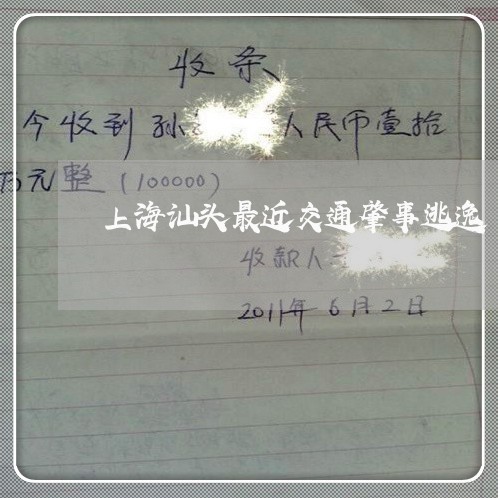 收条
今收到孙 人民币壹拾
万元整(100000)
上海汕头最近交通肇事逃逸
收款人:
2011年6月2日